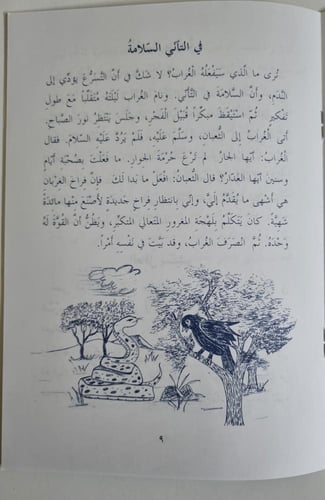 في التأنّي السّلامةُ
تُرى ما الّذي سَيَفْعَلُهُ الغُرابُ؟ لا شَكَّ في أنّ التَّسَرُّعَ يؤدّي إلى
النَّدَمِ، وأنَّ السَّلامَةَ في التّأنّي. ونامَ الغُراب لَيْلَتَهُ مُتَقَلِّباً مَعَ طولِ
تَفْكيرٍ ثُمَّ اسْتَيْقَظَ مبكّراً قُبَيْلَ الفَجْرِ، وجَلَسَ يَنْتَظِرُ نورَ الصّباحِ.
أتى الغُرابُ إلى الثُّعبانِ، وسَلَّمَ عَلَيْهِ، فَلَمْ يَرُدَّ عَلَيْهِ السّلامَ. فقال
الغُرابُ: أيّها الجارُ لم تَرْعَ حُرْمَةَ الجوارِ. ما فعَلْتَ بِصُحْبَةِ أيّامٍ
وسنينَ أيّها الغَدّارُ؟ قال الثُّعبانُ: افْعَلْ ما بَدا لَكَ. فإنّ فِراخَ الغِرْبانِ
هي أشهى ما يُقَدَّمُ إليَّ، وإنّي بانتِظارِ فِراخٍ جَديدَةٍ لأصْنَعَ مِنْها مائدَةً
شَهِيَّةً. كانَ يَتَكَلَّمُ بِلَهْجَةِ المغرورِ المتَعالي المتكبّرِ، ويَظُنُّ أنّ القُوَّةَ لَهُ
وَحْدَهُ. ثُمَّ انْصَرَفَ الغُرابُ، وقد بَيَّتَ في نَفْسِهِ أمْراً.
٩